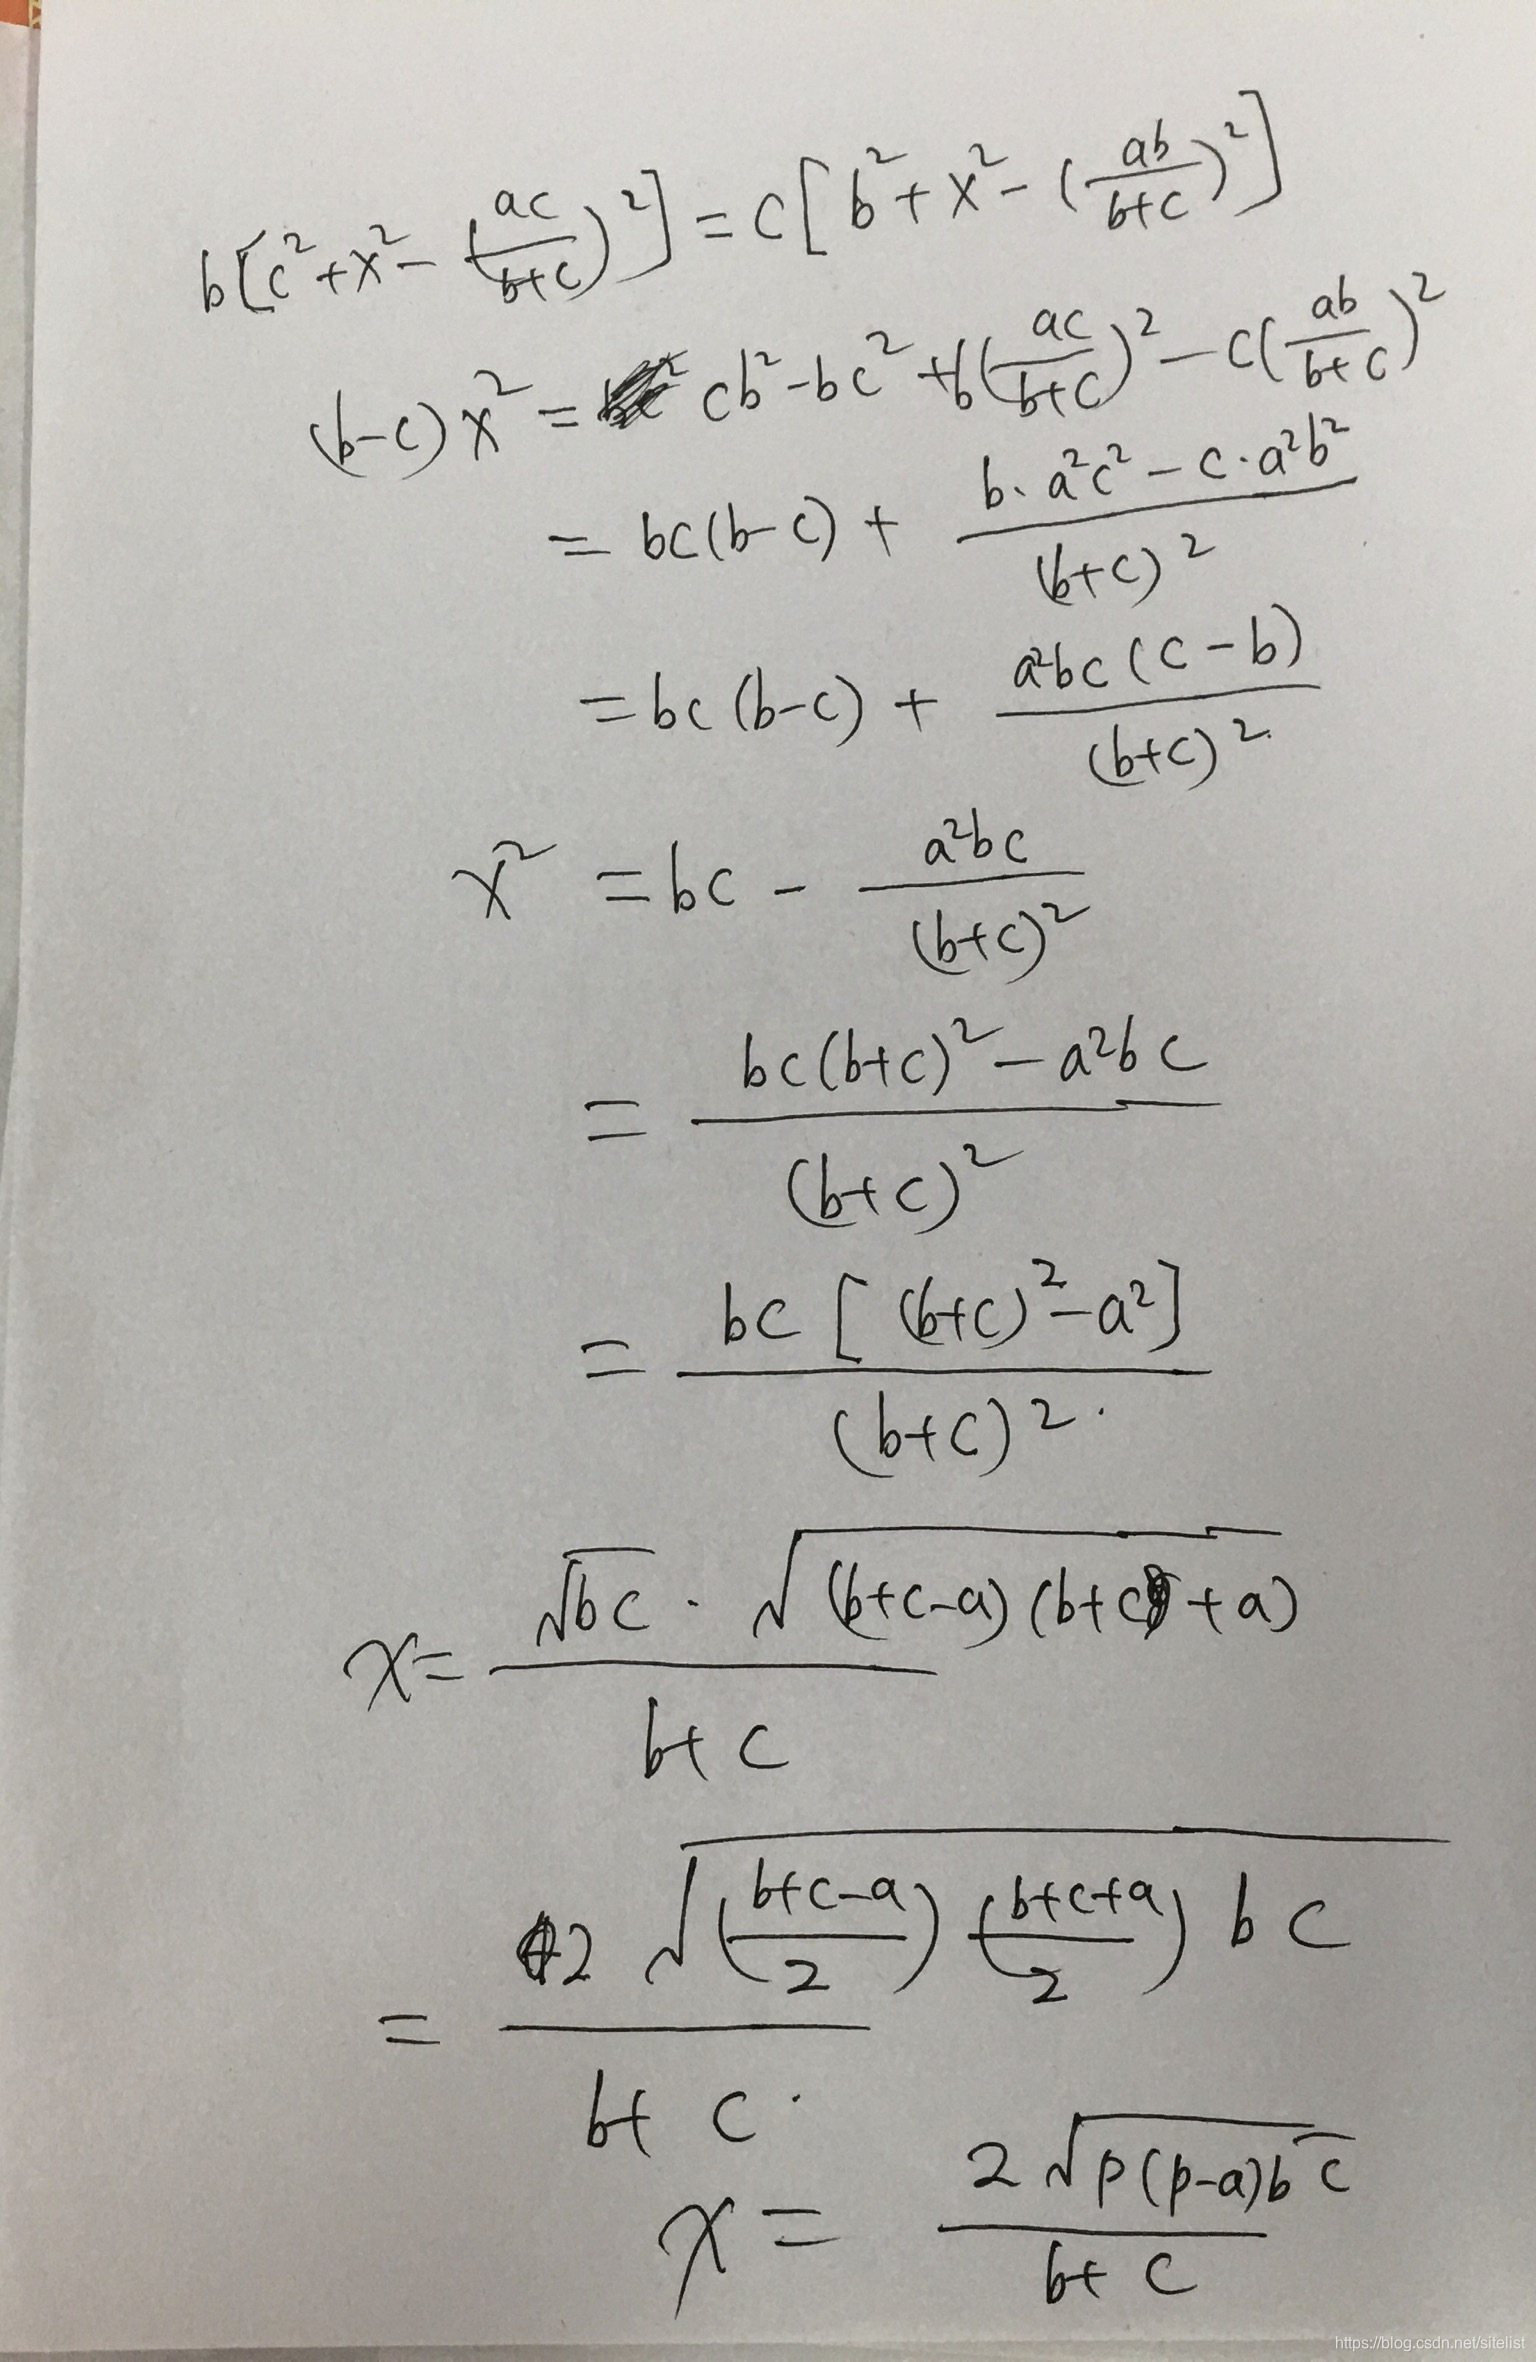 b[c²+x²-(ac/(b+c))²]=c[b²+x²-(ab/(b+c))²]
(b-c)x²=cb²-bc²+b(ac/(b+c))²-c(ab/(b+c))²
=bc(b-c)+(b·a²c²-c·a²b²)/(b+c)²
=bc(b-c)+a²bc(c-b)/(b+c)²
x²=bc-a²bc/(b+c)²
=(bc(b+c)²-a²bc)/(b+c)²
=bc[(b+c)²-a²]/(b+c)²
x=√bc·√((b+c-a)(b+c+a))/(b+c)
=2√(((b+c-a)/2)((b+c+a)/2)bc)/(b+c)
x=2√(p(p-a)bc)/(b+c)
https://blog.csdn.net/sitelist